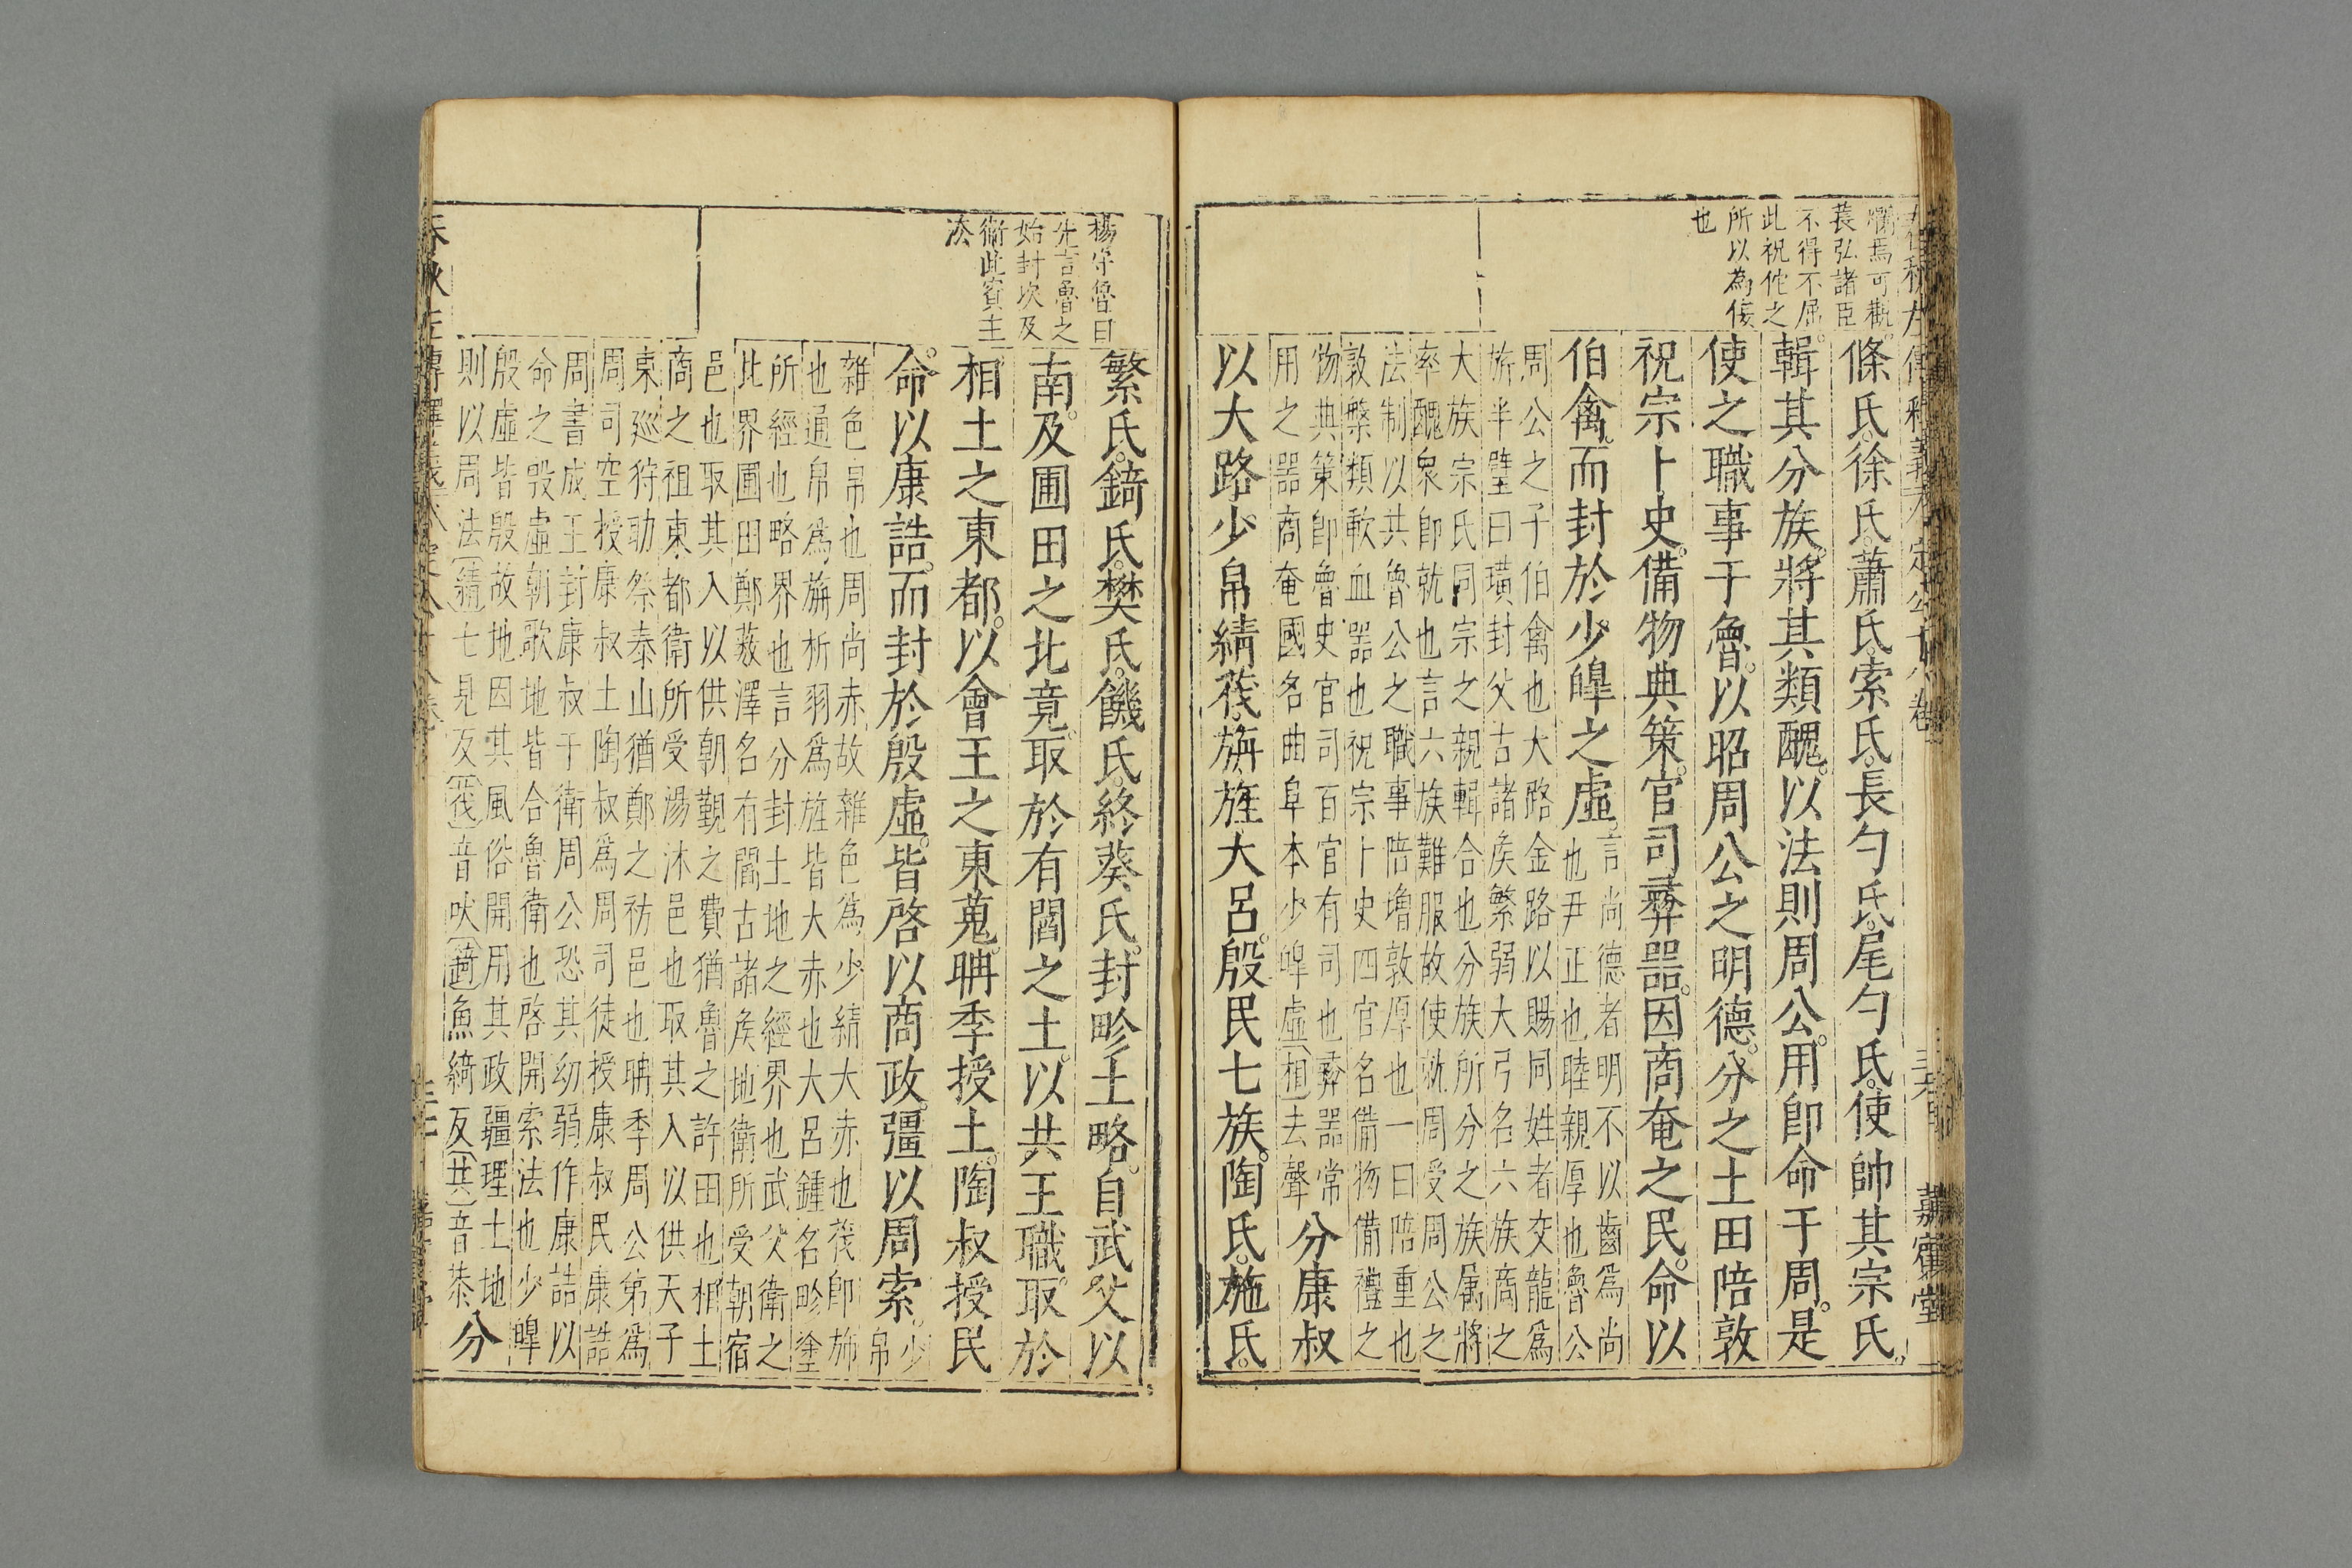 爛焉可觀
萇弘諸臣
不得不屈
此祝佗之
所以為佞
也
條氏徐氏蕭氏索氏長勺氏尾勺氏使帥其宗氏
輯其分族將其類醜以法則周公用卽命于周是
使之職事于魯以昭周公之明德分之土田陪敦
祝宗卜史備物典策官司彝器因商奄之民命以
伯禽而封於少皞之虛
言尚德者明不以齒爲尚
也尹正也睦親厚也魯公
周公之子伯禽也大路金路以賜同姓者交龍爲
旂半璧曰璜封父古諸矦繁弱大弓名六族商之
大族宗氏同宗之親輯合也分族所分之族属將
率醜衆卽就也言六族難服故使就周受周公之
法制以共魯公之職事陪増敦厚也一曰陪重也
敦槃類軟血器也祝宗卜史四官名備物備禮之
物典策卽魯史官司百官有司也彝器常
用之器商奄國名曲阜本少皞虛相去聲
分康叔
以大路少帛綪茷旃旌大呂殷民七族陶氏施氏
嘉賓堂
楊守魯曰
先言魯之
始封次及
衞此賓主
法
繁氏錡氏樊氏饑氏終葵氏封畛土略自武父以
南及圃田之北竟取於有閻之土以共王職取於
相土之東都以會王之東蒐聃季授土陶叔授民
命以康誥而封於殷虛皆啓以商政彊以周索
少
帛
雜色帛也周尚赤故雜色爲少綪大赤也茷卽斾
也通帛爲旃析羽爲旌皆大赤也大呂鍾名畛塗
所經也略界也言分封土地之經界也武父衞之
北界圃田鄭薮澤名有閻古諸矦地衞所受朝宿
邑也取其入以供朝覲之費猶魯之許田也相土
商之祖東都衞所受湯沐邑也取其入以供天子
東廵狩助祭泰山猶鄭之祊邑也聃季周公第爲
周司空授康叔土陶叔爲周司徒授康叔民康誥
周書成王封康叔于衞周公恐其幼弱作康誥以
命之殷虛朝歌地皆合魯衞也啓開索法也少皞
殷虛皆殷故地因其風俗開用其政疆理土地
則以周法綪七見反茷音吠錡魚綺反共音恭
分